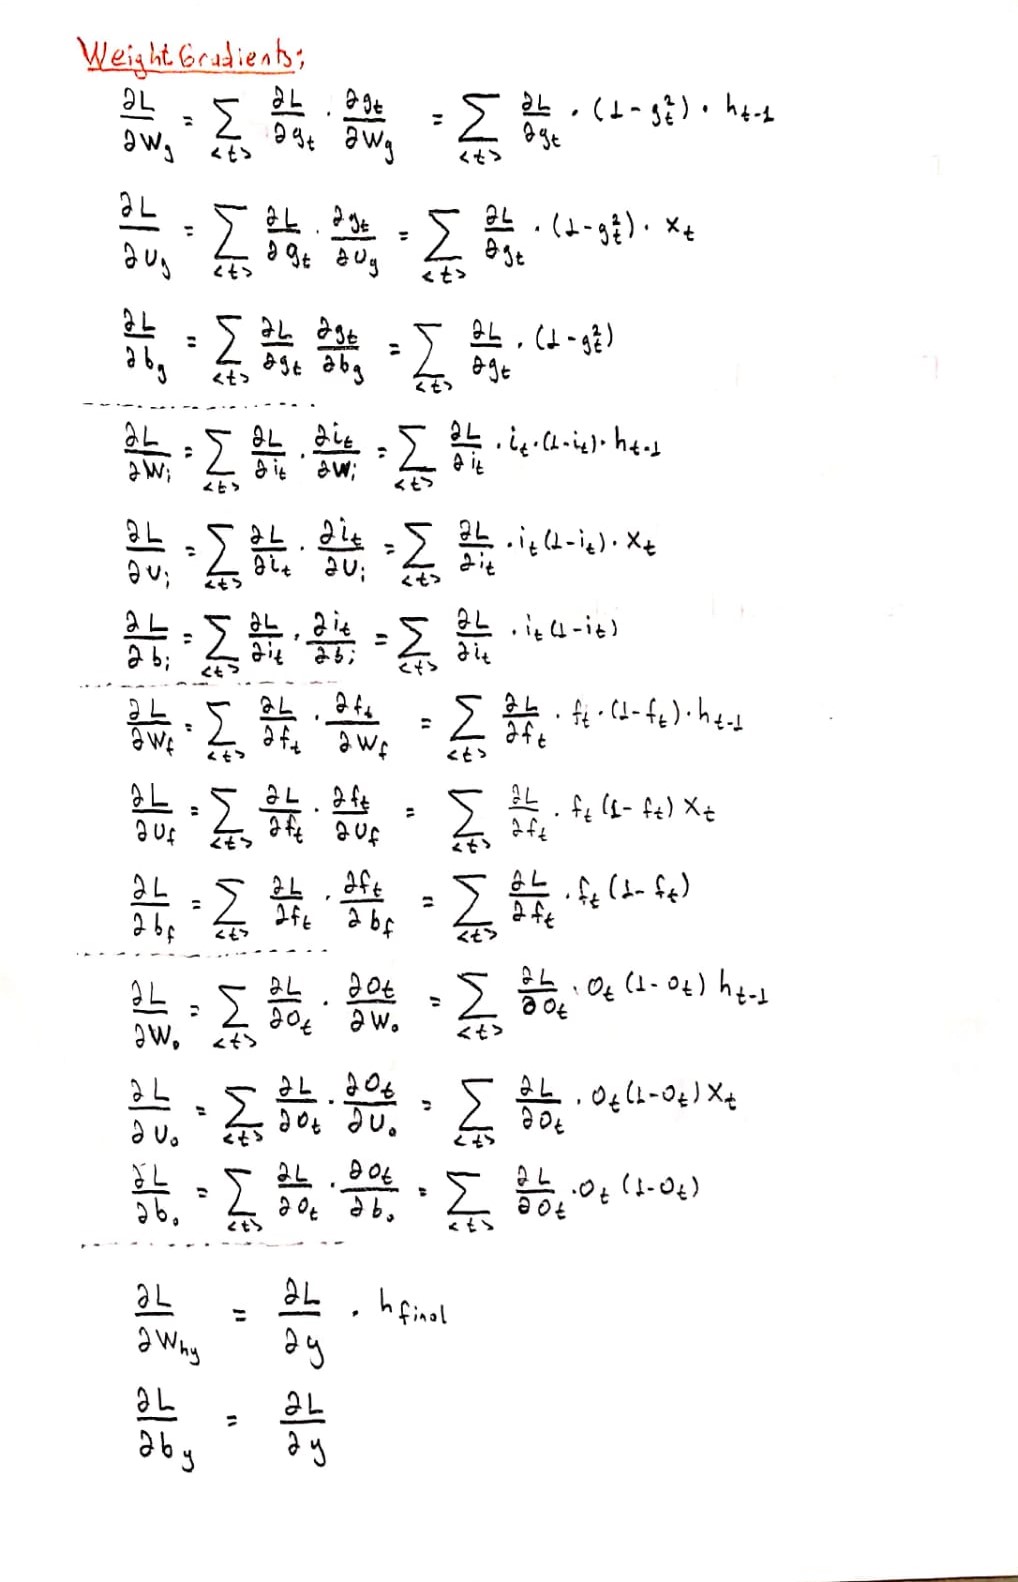 Weight Gradients:
∂L/∂Wg = Σ<t> ∂L/∂gt · ∂gt/∂Wg = Σ<t> ∂L/∂gt · (1-gt²) · ht-1
∂L/∂Ug = Σ<t> ∂L/∂gt · ∂gt/∂Ug = Σ<t> ∂L/∂gt · (1-gt²) · xt
∂L/∂bg = Σ<t> ∂L/∂gt ∂gt/∂bg = Σ<t> ∂L/∂gt · (1-gt²)
∂L/∂Wi = Σ<t> ∂L/∂it · ∂it/∂Wi = Σ<t> ∂L/∂it · it · (1-it) · ht-1
∂L/∂Ui = Σ<t> ∂L/∂it · ∂it/∂Ui = Σ<t> ∂L/∂it · it (1-it) · xt
∂L/∂bi = Σ<t> ∂L/∂it · ∂it/∂bi = Σ<t> ∂L/∂it · it (1-it)
∂L/∂Wf = Σ<t> ∂L/∂ft · ∂ft/∂Wf = Σ<t> ∂L/∂ft · ft · (1-ft) · ht-1
∂L/∂Uf = Σ<t> ∂L/∂ft · ∂ft/∂Uf = Σ<t> ∂L/∂ft · ft (1-ft) xt
∂L/∂bf = Σ<t> ∂L/∂ft · ∂ft/∂bf = Σ<t> ∂L/∂ft · ft (1-ft)
∂L/∂Wo = Σ<t> ∂L/∂Ot · ∂Ot/∂Wo = Σ<t> ∂L/∂Ot · Ot (1-Ot) ht-1
∂L/∂Uo = Σ<t> ∂L/∂Ot · ∂Ot/∂Uo = Σ<t> ∂L/∂Ot · Ot (1-Ot) xt
∂L/∂bo = Σ<t> ∂L/∂Ot · ∂Ot/∂bo = Σ<t> ∂L/∂Ot · Ot (1-Ot)
∂L/∂Why = ∂L/∂y · hfinal
∂L/∂by = ∂L/∂y